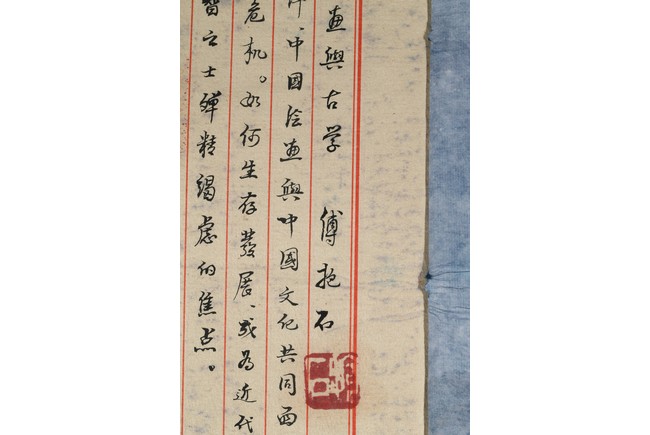 畫與古学 傅抱石
、中國绘畫與中國文化共同面
危机。如何生存發展、或为近代
智之士殫精竭慮的焦点。